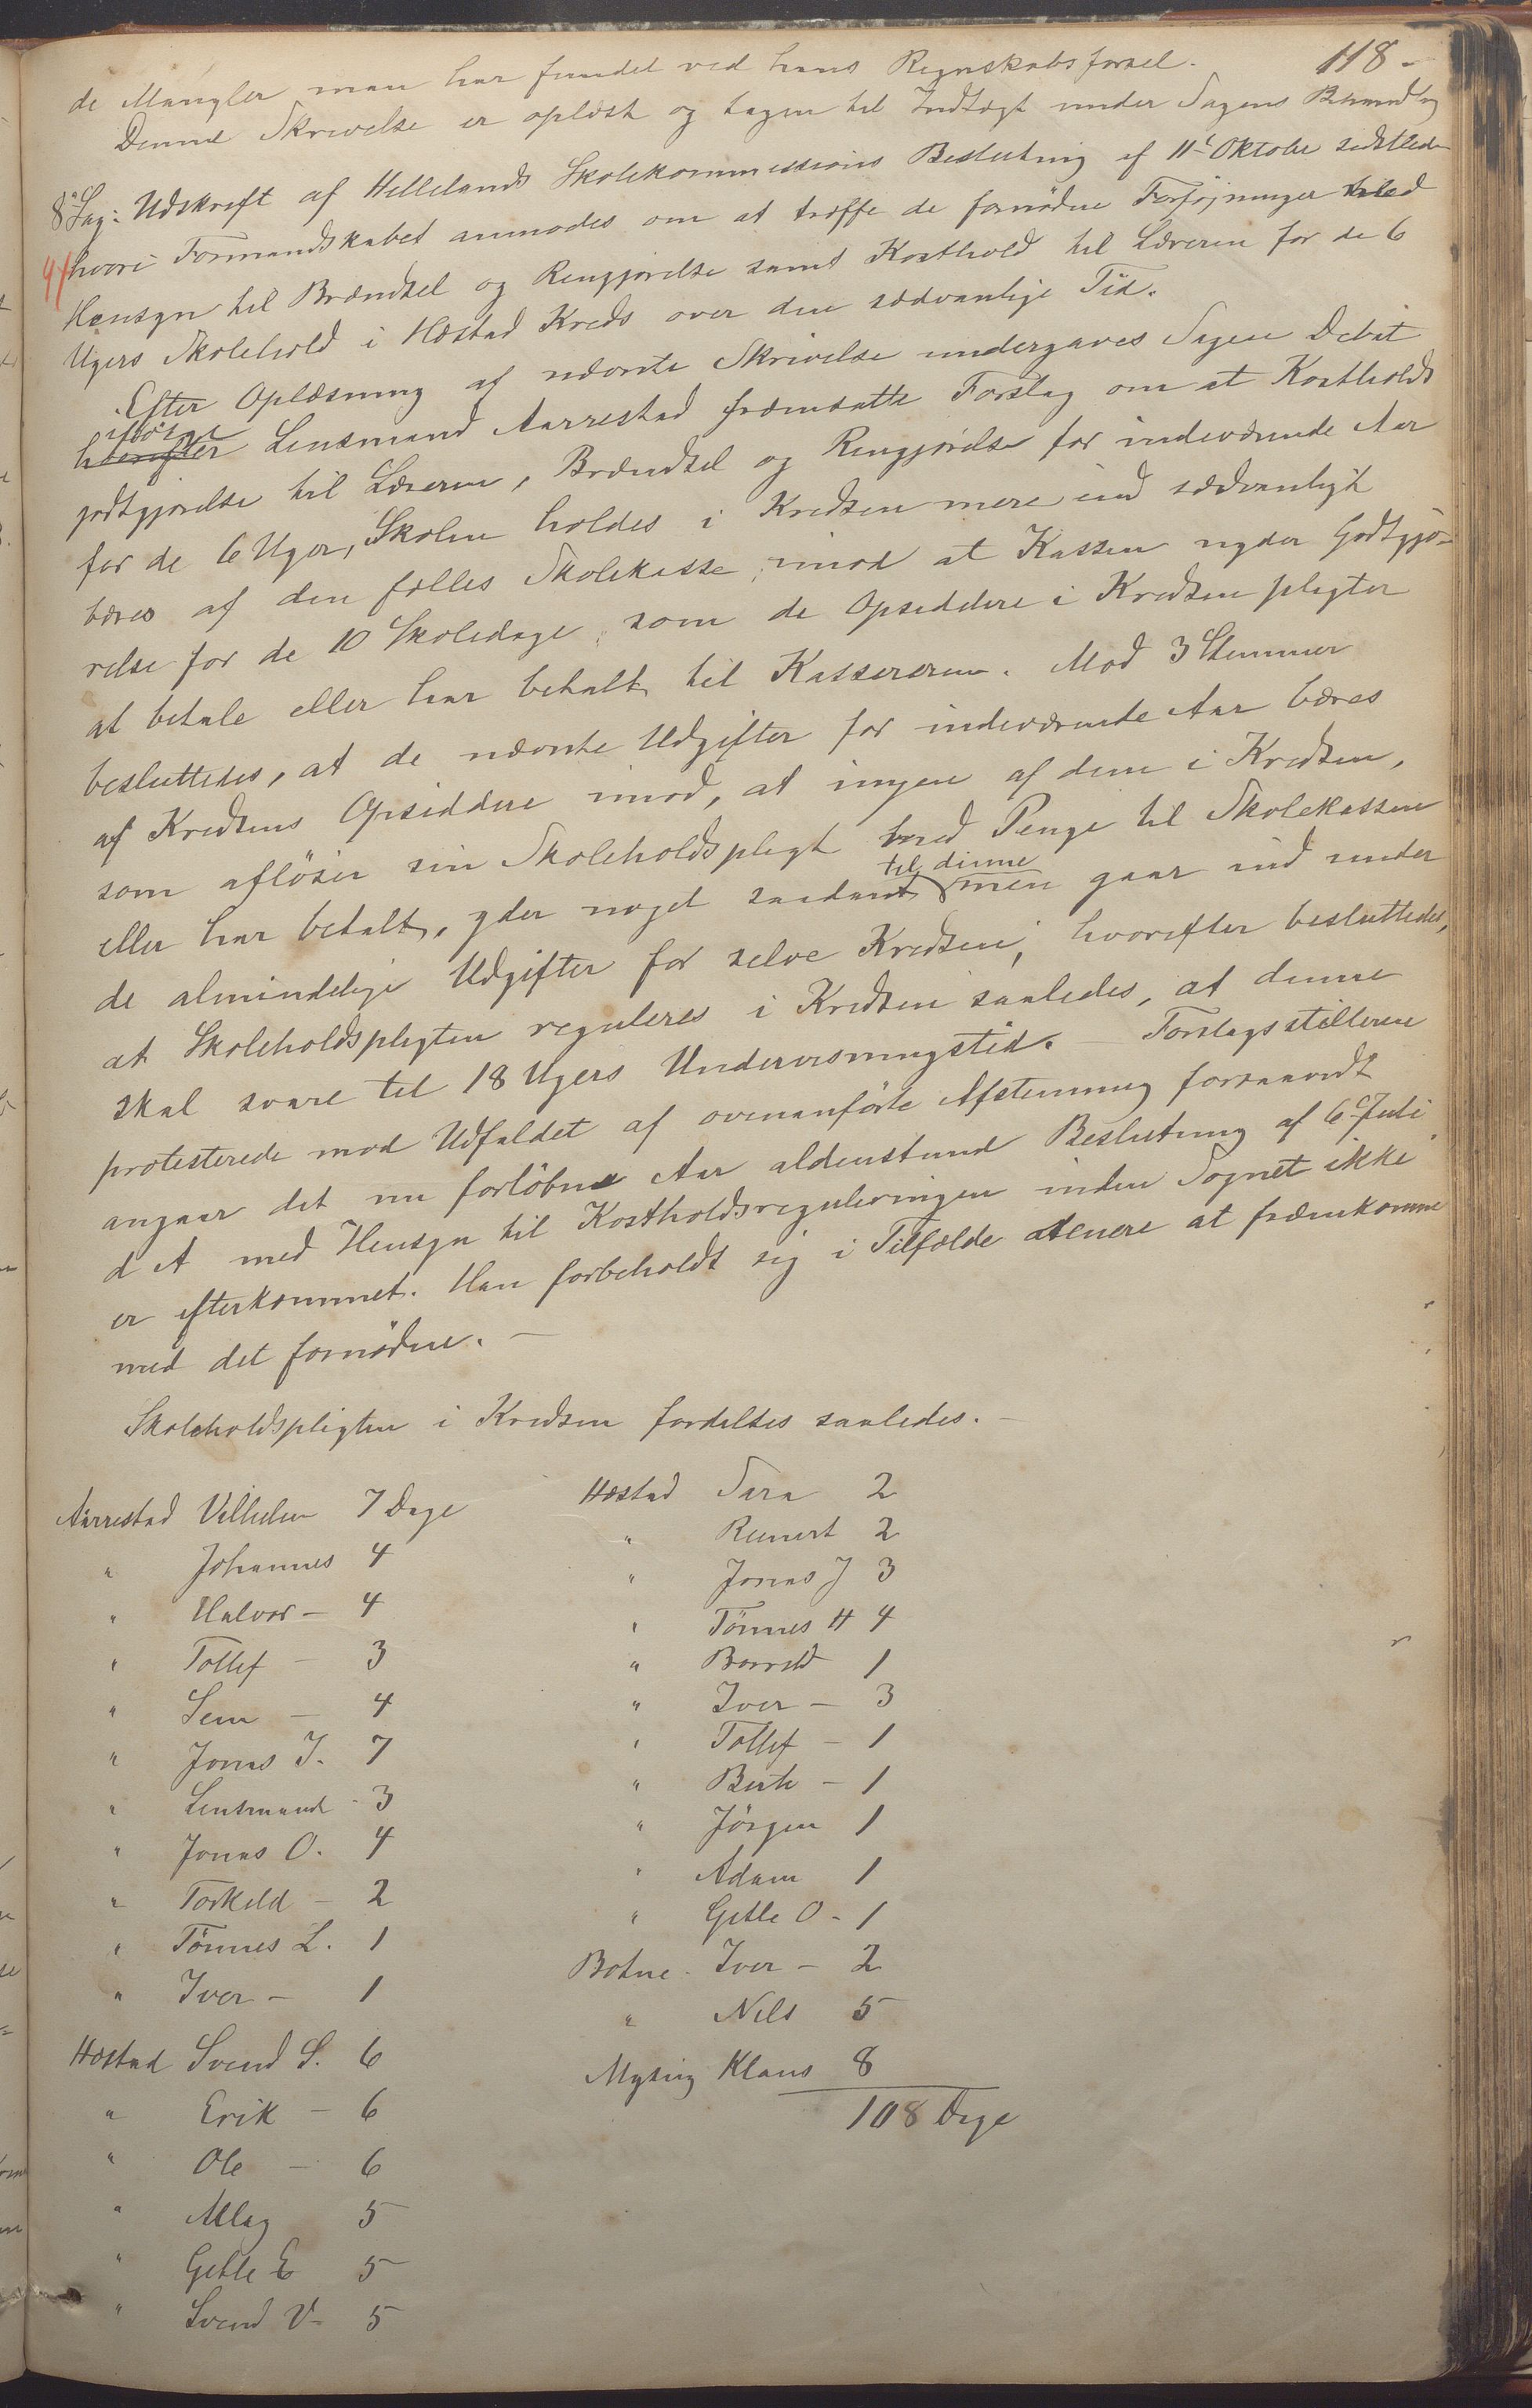 118-
de Mangler man har fundet ved hans Regnskabsførsel.
Denne Skrivelse er oplæst og tagen til Indtægt under Sagens Behandling
8de Sag: Udskrift af Hellelands Skolekommissions Beslutning af 11te Oktober sidstleden
hvori Formandskabet anmodes om at træffe de fornødne Forføininger med
Hensyn til Brændsel og Rengjørelse samt Kosthold til Læreren for de 6
Ugers Skolehold i Hæstad Kreds over den sædvanlige Tid.
Efter Oplæsning af nævnte Skrivelse undergaves Sagen Debat
ifølge
hvorefter Lensmand Aarrestad fremsatte Forslag om at Kostholds
godtgjørelse til Læreren, Brændsel og Rengjørelse for indeværende Aar
for de 6 Uger, Skolen holdes i Kredsen mere end sædvanligt
bæres af den fælles Skolekasse, imod at Kassen nyder Godtgjø-
relse for de 10 Skoledage, som de Opsiddere i Kredsen pligter
at betale eller har betalt til Kassereren. Mod 3 Stemmer
besluttedes, at de nævnte Udgifter for indeværende Aar bæres
af Kredsens Opsiddere imod, at ingen af dem i Kredsen,
som afløser sin Skoleholdspligt med Penge til Skolekassen
til denne
eller har betalt, yder noget saadant men gaar ind under
de almindelige Udgifter for selve Kredsen; hvorefter besluttedes,
at Skoleholdspligten reguleres i Kredsen saaledes, at denne
skal svare til 18 Ugers Undervisningstid. Forslagsstilleren
protesterede mod Udfaldet af ovenanførte Afstemning forsaavidt
angaar det nu forløbne Aar aldenstund Beslutning af 6te Juli
d A med Hensyn til Kostholdsreguleringen inden Sognet ikke
er efterkommet. Han forbeholdt sig i Tilfælde senere at fremkomme
med det fornødne. —
Skoleholdspligten i Kredsen fordeltes saaledes. —
Aarrestad Vilhelm 7 Dage
" Johannes 4
" Halvor - 4
" Tollef - 3
" Sem - 4
" Jonas J. 7
" Lensmand - 3
" Jonas O. 4
" Torkeld - 2
" Tönnes L. 1
" Iver - 1
Hæstad Svend S. 6
" Erik - 6
" Ole - 6
" Allag 5
" Getle E 5
" Svend V- 5
Hæstad Sara 2
" Reinert 2
" Jonas J 3
" Tönnes H 4
" Borreld 1
" Iver - 3
" Tollef - 1
" Berte - 1
" Jörgen 1
" Adam 1
" Getle O - 1
Botne - Iver - 2
" Nils 5
Mysing Klaus 8
108 Dage